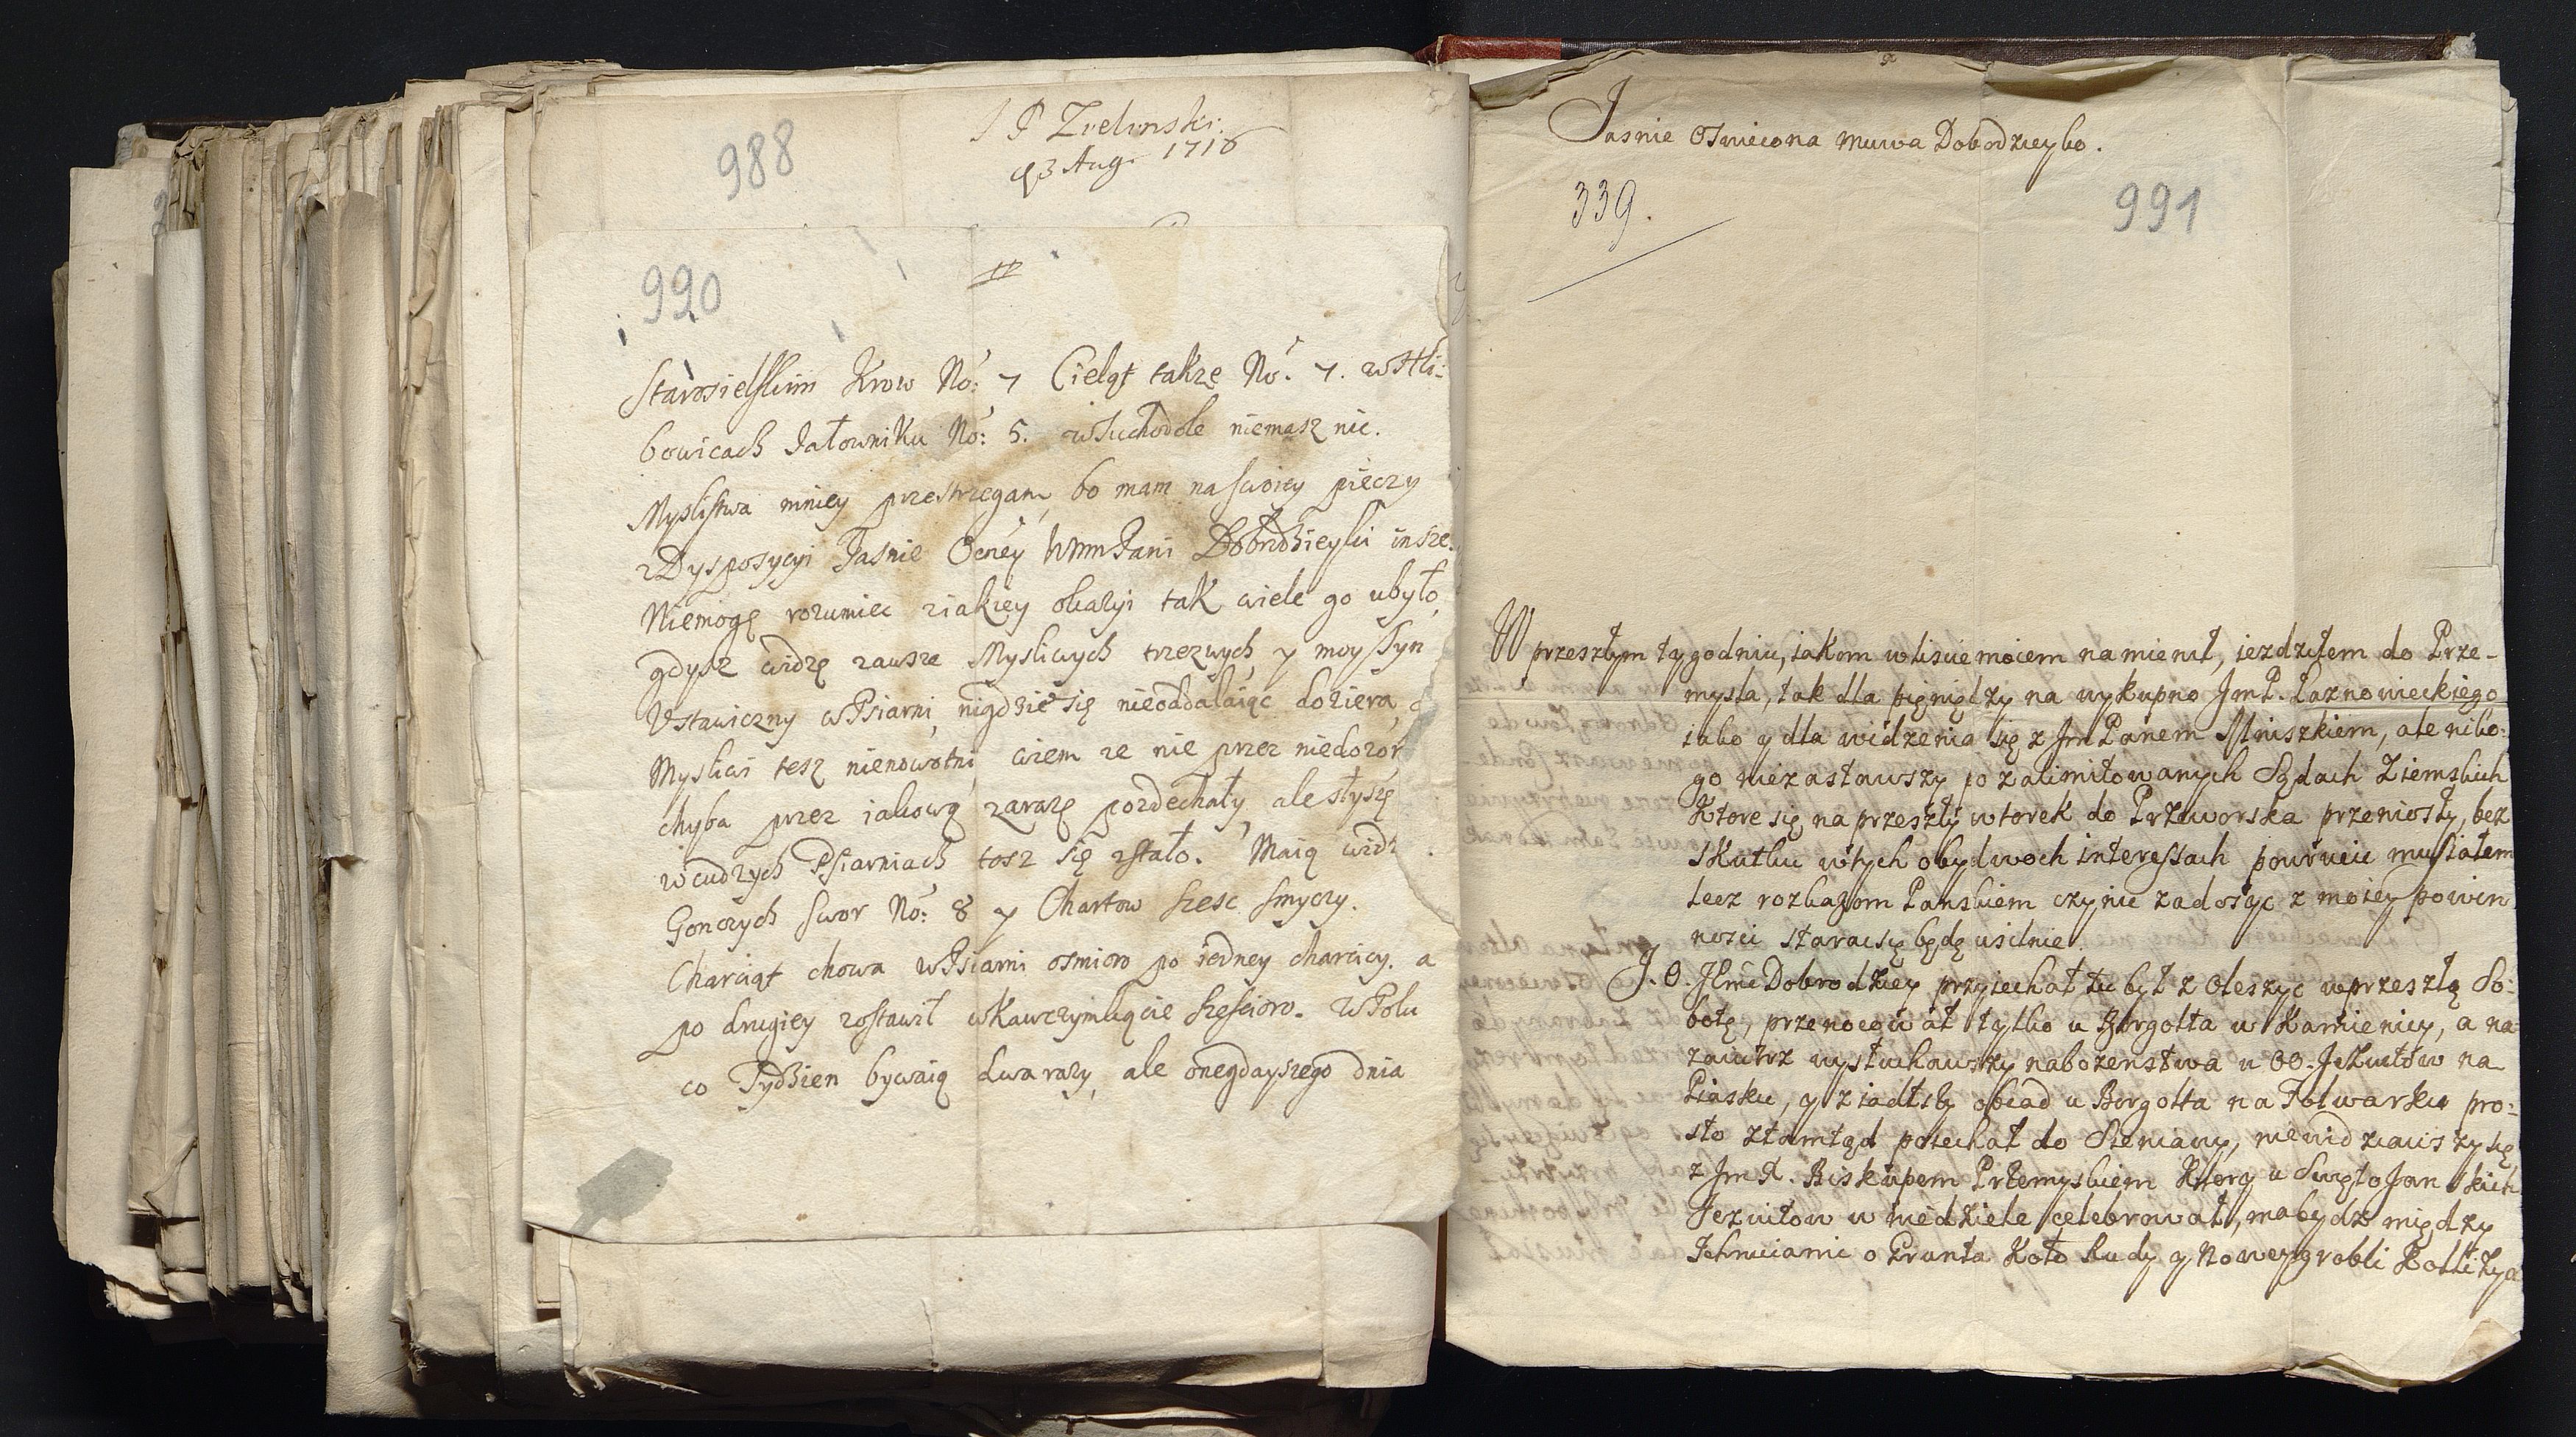 988
J P Zielinski
23 Aug. 1718
990
Starosielskim Krow No: 7 Cieląt także No. 7. w Hli:
bowicach Jałowniku No: 5. w Suchodole niemasz nic.
Myslistwa mniey przestrzegam, bo mam na swoiey pieczy
z Dysposycyi Jasnie Ocney WmmPani Dobrodzieyki insze.
Niemogę rozumiec z iakiey okazyi tak wiele go ubyło,
gdysz widzę zawsze Mysliwych trzezwych, y moy Syn
Ustawiczny w Psiarni, nigdzie się nieoddalaiąc doziera,
Mysliwi tesz nienowotni, wiem ze nie przez niedozor
chyba przez iakową zarazę pozdechały, ale słyszę
w cudzych Psiarniach tosz się zstało. Maią widz
Gonczych swor No: 8 y Chartow szesc smyczy.
Charciąt chowa w Psiarni osmioro po iedney charcicy. a
po drugiey zostawił w Kawczymkącie szescioro. w Polu
co Tydzien bywaią dwa razy, ale onegdayszego dnia
Jasnie Oswiecona Mciwa Dobodzieyko.
339.
991
W przeszłym tygodniu, iakom w liscie moiem namienił, iezdziłem do Prze-
mysla, tak dla pięniędzy na wykupno JmP. Łaznowieckiego
iako y dla widzenia się z Jm Panem Mniszkiem, ale niko:
go niezastawszy po zalimitowanych Sądach Ziemskich
Ktore się na przeszły wtorek do Przeworska przeniosły, bez
skutku w tych obydwoch interessach powrocic musiałem
lecz rozkazom Panskiem czynic zadosyc z moiey powin
nosci starac się będę usilnie.
J. O. Jmc Dobrodziey przyiechał tu był z Oleszyc w przeszłą So:
botę, przenocował tylko u Borgolta w Kamienicy, a na
zaiutrz wysłuchawszy nabozenstwa u OO. Jezuitow na
Piasku, y ziadłszy obiad u Borgolta na Folwarku pro:
sto ztamtąd poiechał do Sieniawy, niewidziawszy się
z Jm X. Biskupem Przemyskiem Ktory u Swięto Jan skich
Jezuitow w niedziele celebrował, ma bydz między
Ichmciami o Grunta Koło Rudy y Nowey grobli